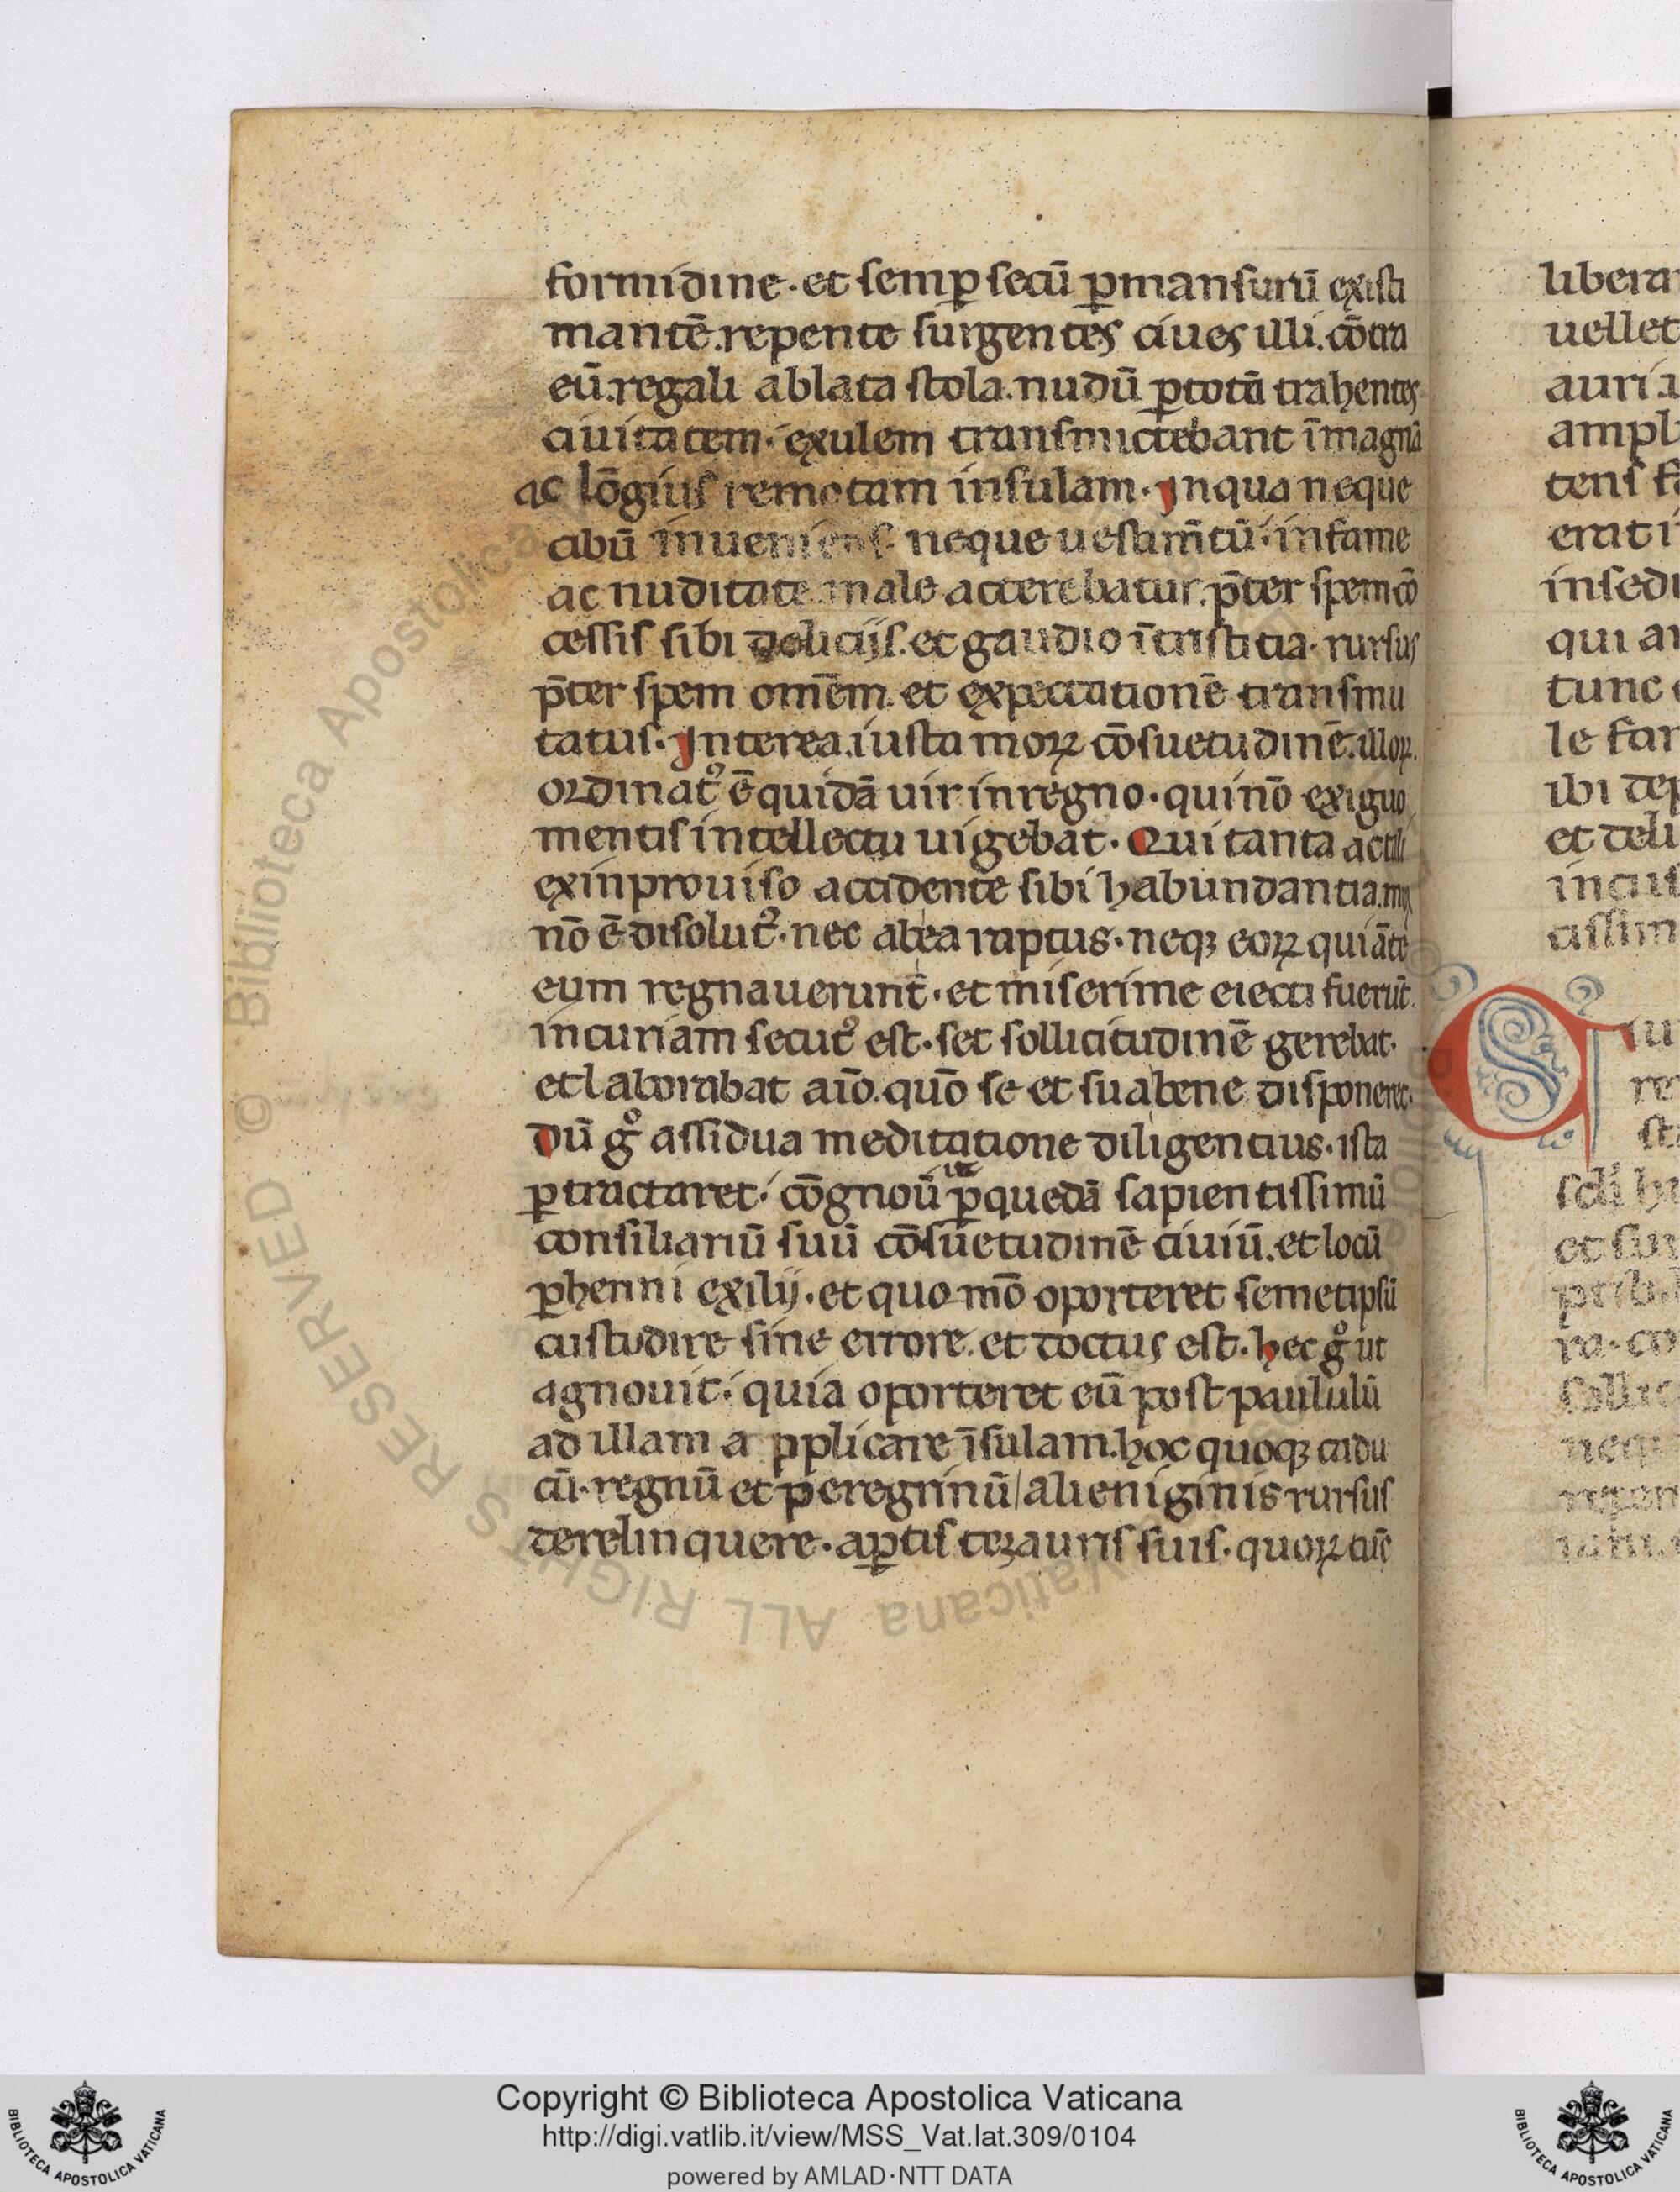 formidine. et semꝑ secū ꝑmansurū existi
mantē. repente surgentes ciues illi. cōtra
eū. regali ablata stola. nudū ꝑ totū trahentes
ciuitatem. exulem transmictebant ī magnā
ac lōgius remotam insulam. In qua neque
cibū inueniens neque uestam̄tū. in fame
ac nuditate male acterebatur. p̄ter spem cō
cessis sibi deliciis. et gaudio ī tristitia. rursus
p̄ter spem omēm. et expectationē transmu
tatus. Interea. iusta moꝝ cōsuetudinē. illoꝝ.
ordinatꝰ ē quidā uir in regno. qui nō exiguo
mentis intellectu uigebat. Qui tanta
ex inprouiso accidente sibi habundantia.
nō ē disolutꝰ. nec ab ea raptus. neqꝫ eoꝝ qui āte
eum regnauerunt̄. et miserime eiecti fuerūt.
incuriam secutꝰ est. set sollicitudinē gerebat.
et laborabat aīo. quō se et sua bene disponeret.
Dū gͦ assidua meditatione diligentius. ista
ꝑtractaret. cōgnoū ꝑ quedā sapientissimū
consiliariū suū cōsuetudinē ciuiū. et locū
ꝑhenni exilij. et quo mō oporteret semetipsū
custodire sine errore. et doctus est. hec gͦ ut
agnouit. quia oporteret eū post paululū
ad illam a pplicare īsulam. hoc quoqꝫ cadu
cū. regnū et peregrinū / alieniginis rursus
derelinquere. aꝑtis tezauris suis. quoꝝ tūc
libera
uellet
auri.
ampl
tens
erat i
insedi
qui a
tunc
le far
ibi dep
et deli
in cuis
cissim
re
st
et sui
ra. co
sollic
neq
Copyright © Biblioteca Apostolica Vaticana
http://digi.vatlib.it/view/MSS_Vat.lat.309/0104
powered by AMLAD·NTT DATA
BIBLIOTECA APOSTOLICA VATICANA
BIBLIOTECA APOSTOLICA VATICANA
© Biblioteca Apostolica Vaticana ALL RIGHTS RESERVED